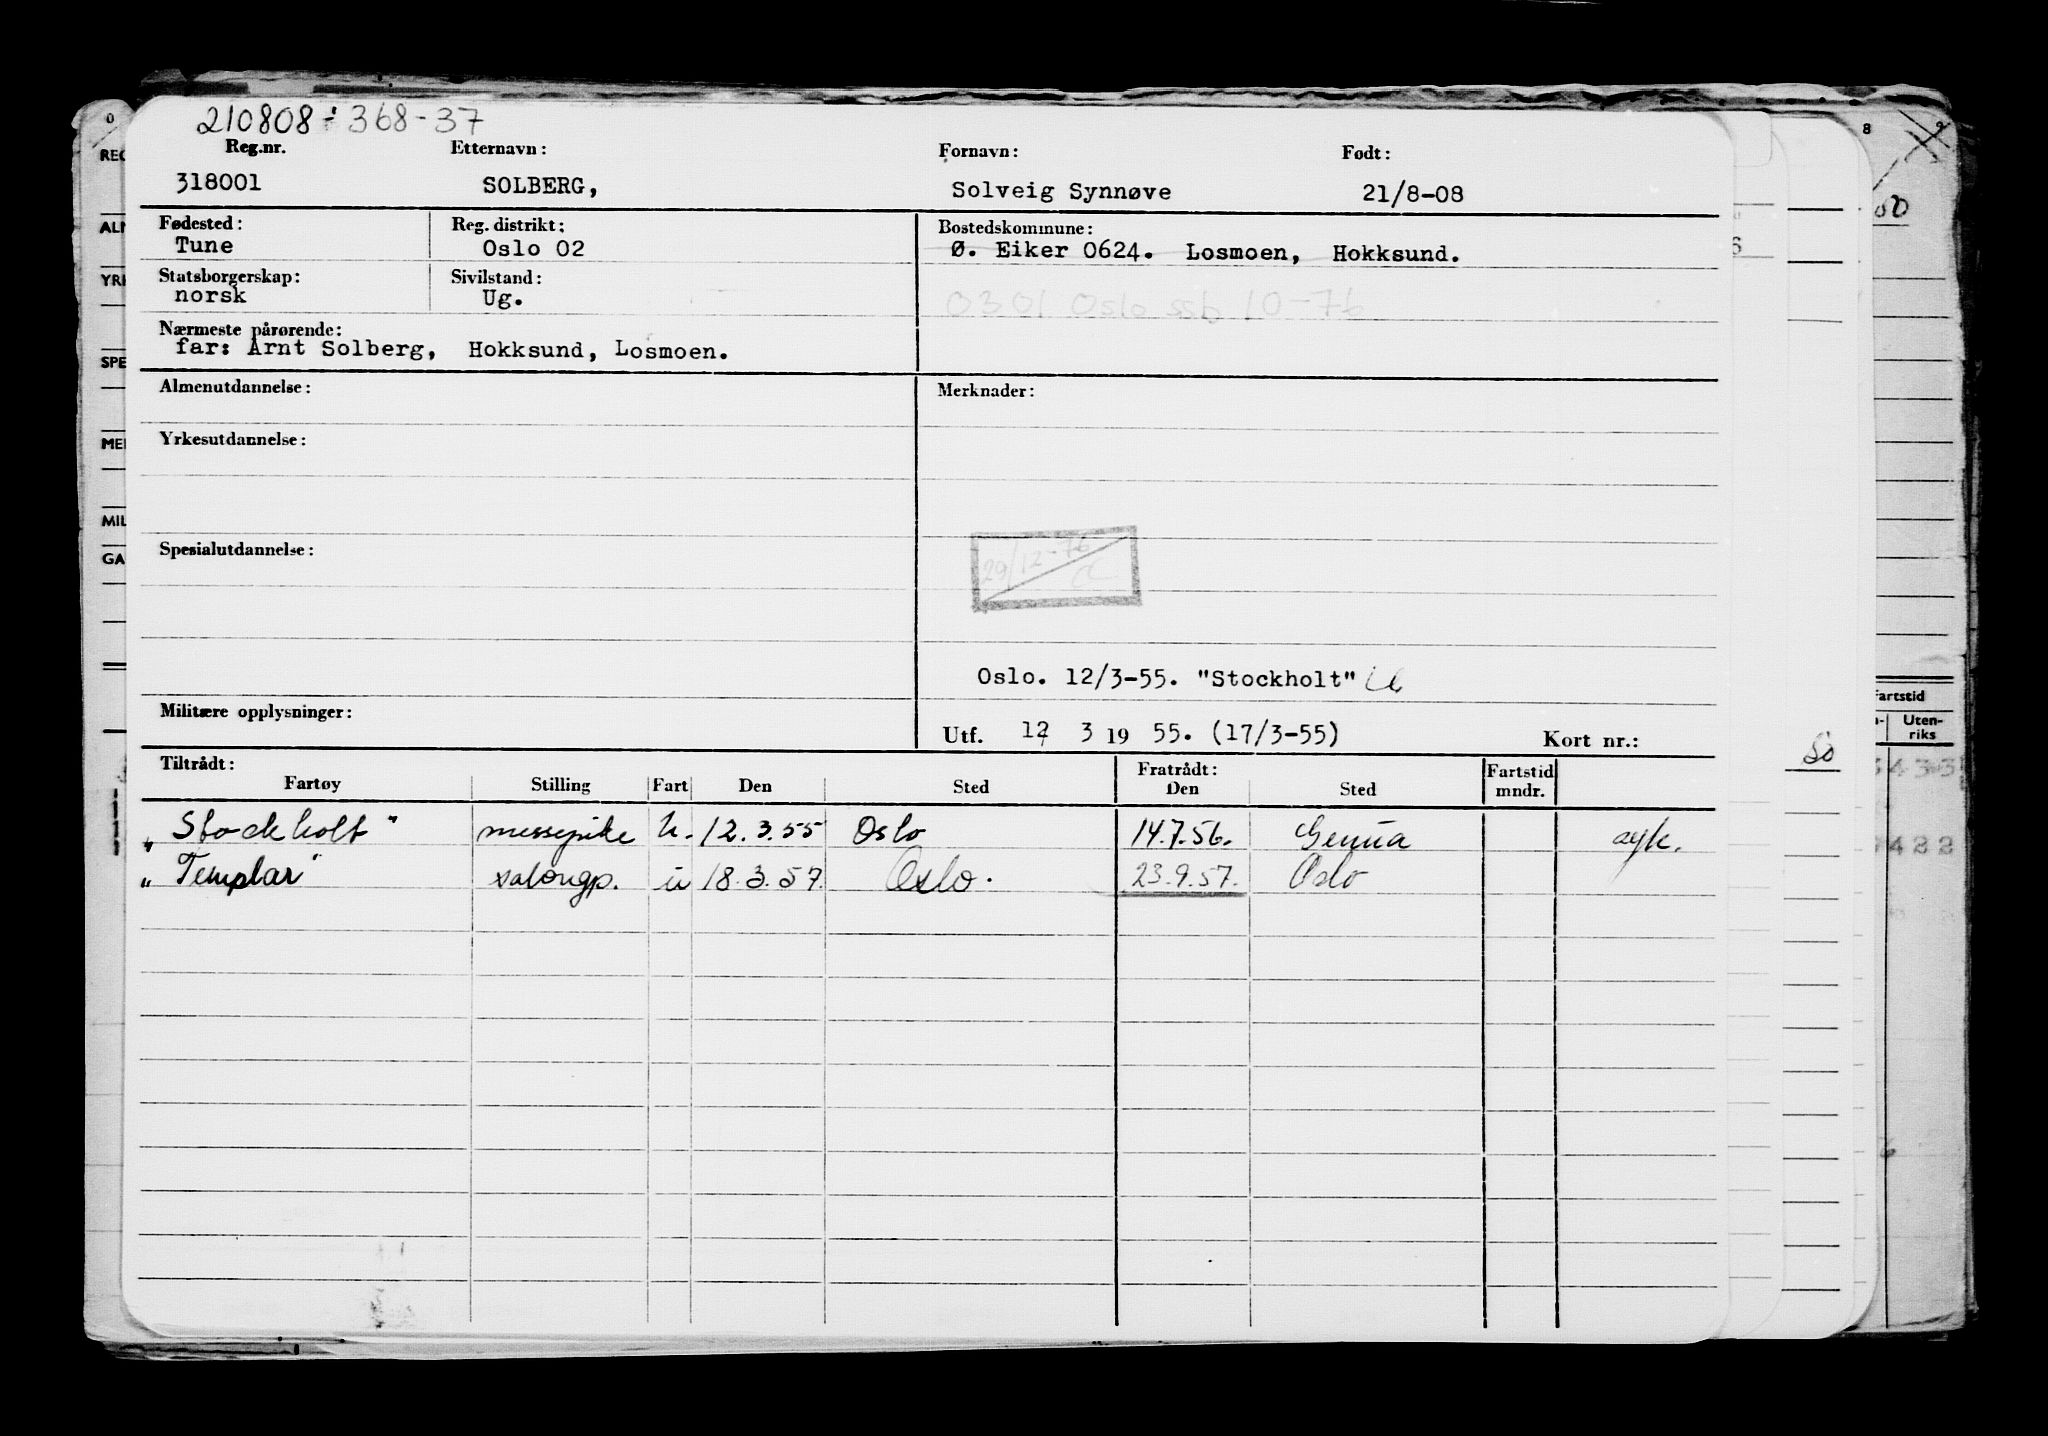 210808 - 368-37
Reg.nr. Etternavn: Fornavn: Født:
318001 SOLBERG, Solveig Synnøve 21/8-08
Fødested: Reg. distrikt: Bostedskommune:
Tune Oslo 02 Ø. Eiker 0624. Losmoen, Hokksund.
Statsborgerskap: Sivilstand:
norsk Ug.
0301 Oslo ssb 10-76
Nærmeste pårørende:
far: Arnt Solberg, Hokksund, Losmoen.
Almenutdannelse: Merknader:
Yrkesutdannelse:
Spesialutdannelse:
29/12-76
Oslo. 12/3-55. "Stockholt"
Militære opplysninger:
Utf. 12 3 19 55. (17/3-55) Kort nr.:
Tiltrådt: Fratrådt: Fartstid
Fartøy Stilling Fart Den Sted Den Sted mndr.
"Stockholt" messepike u. 12.3.55 Oslo 14.7.56. Genua avk.
"Templar" salongp. u 18.3.57. Oslo. 23.9.57. Oslo
REG
ALM
YRK
SPE
MER
MIL
GA
Fartstid
Uten-
riks
50